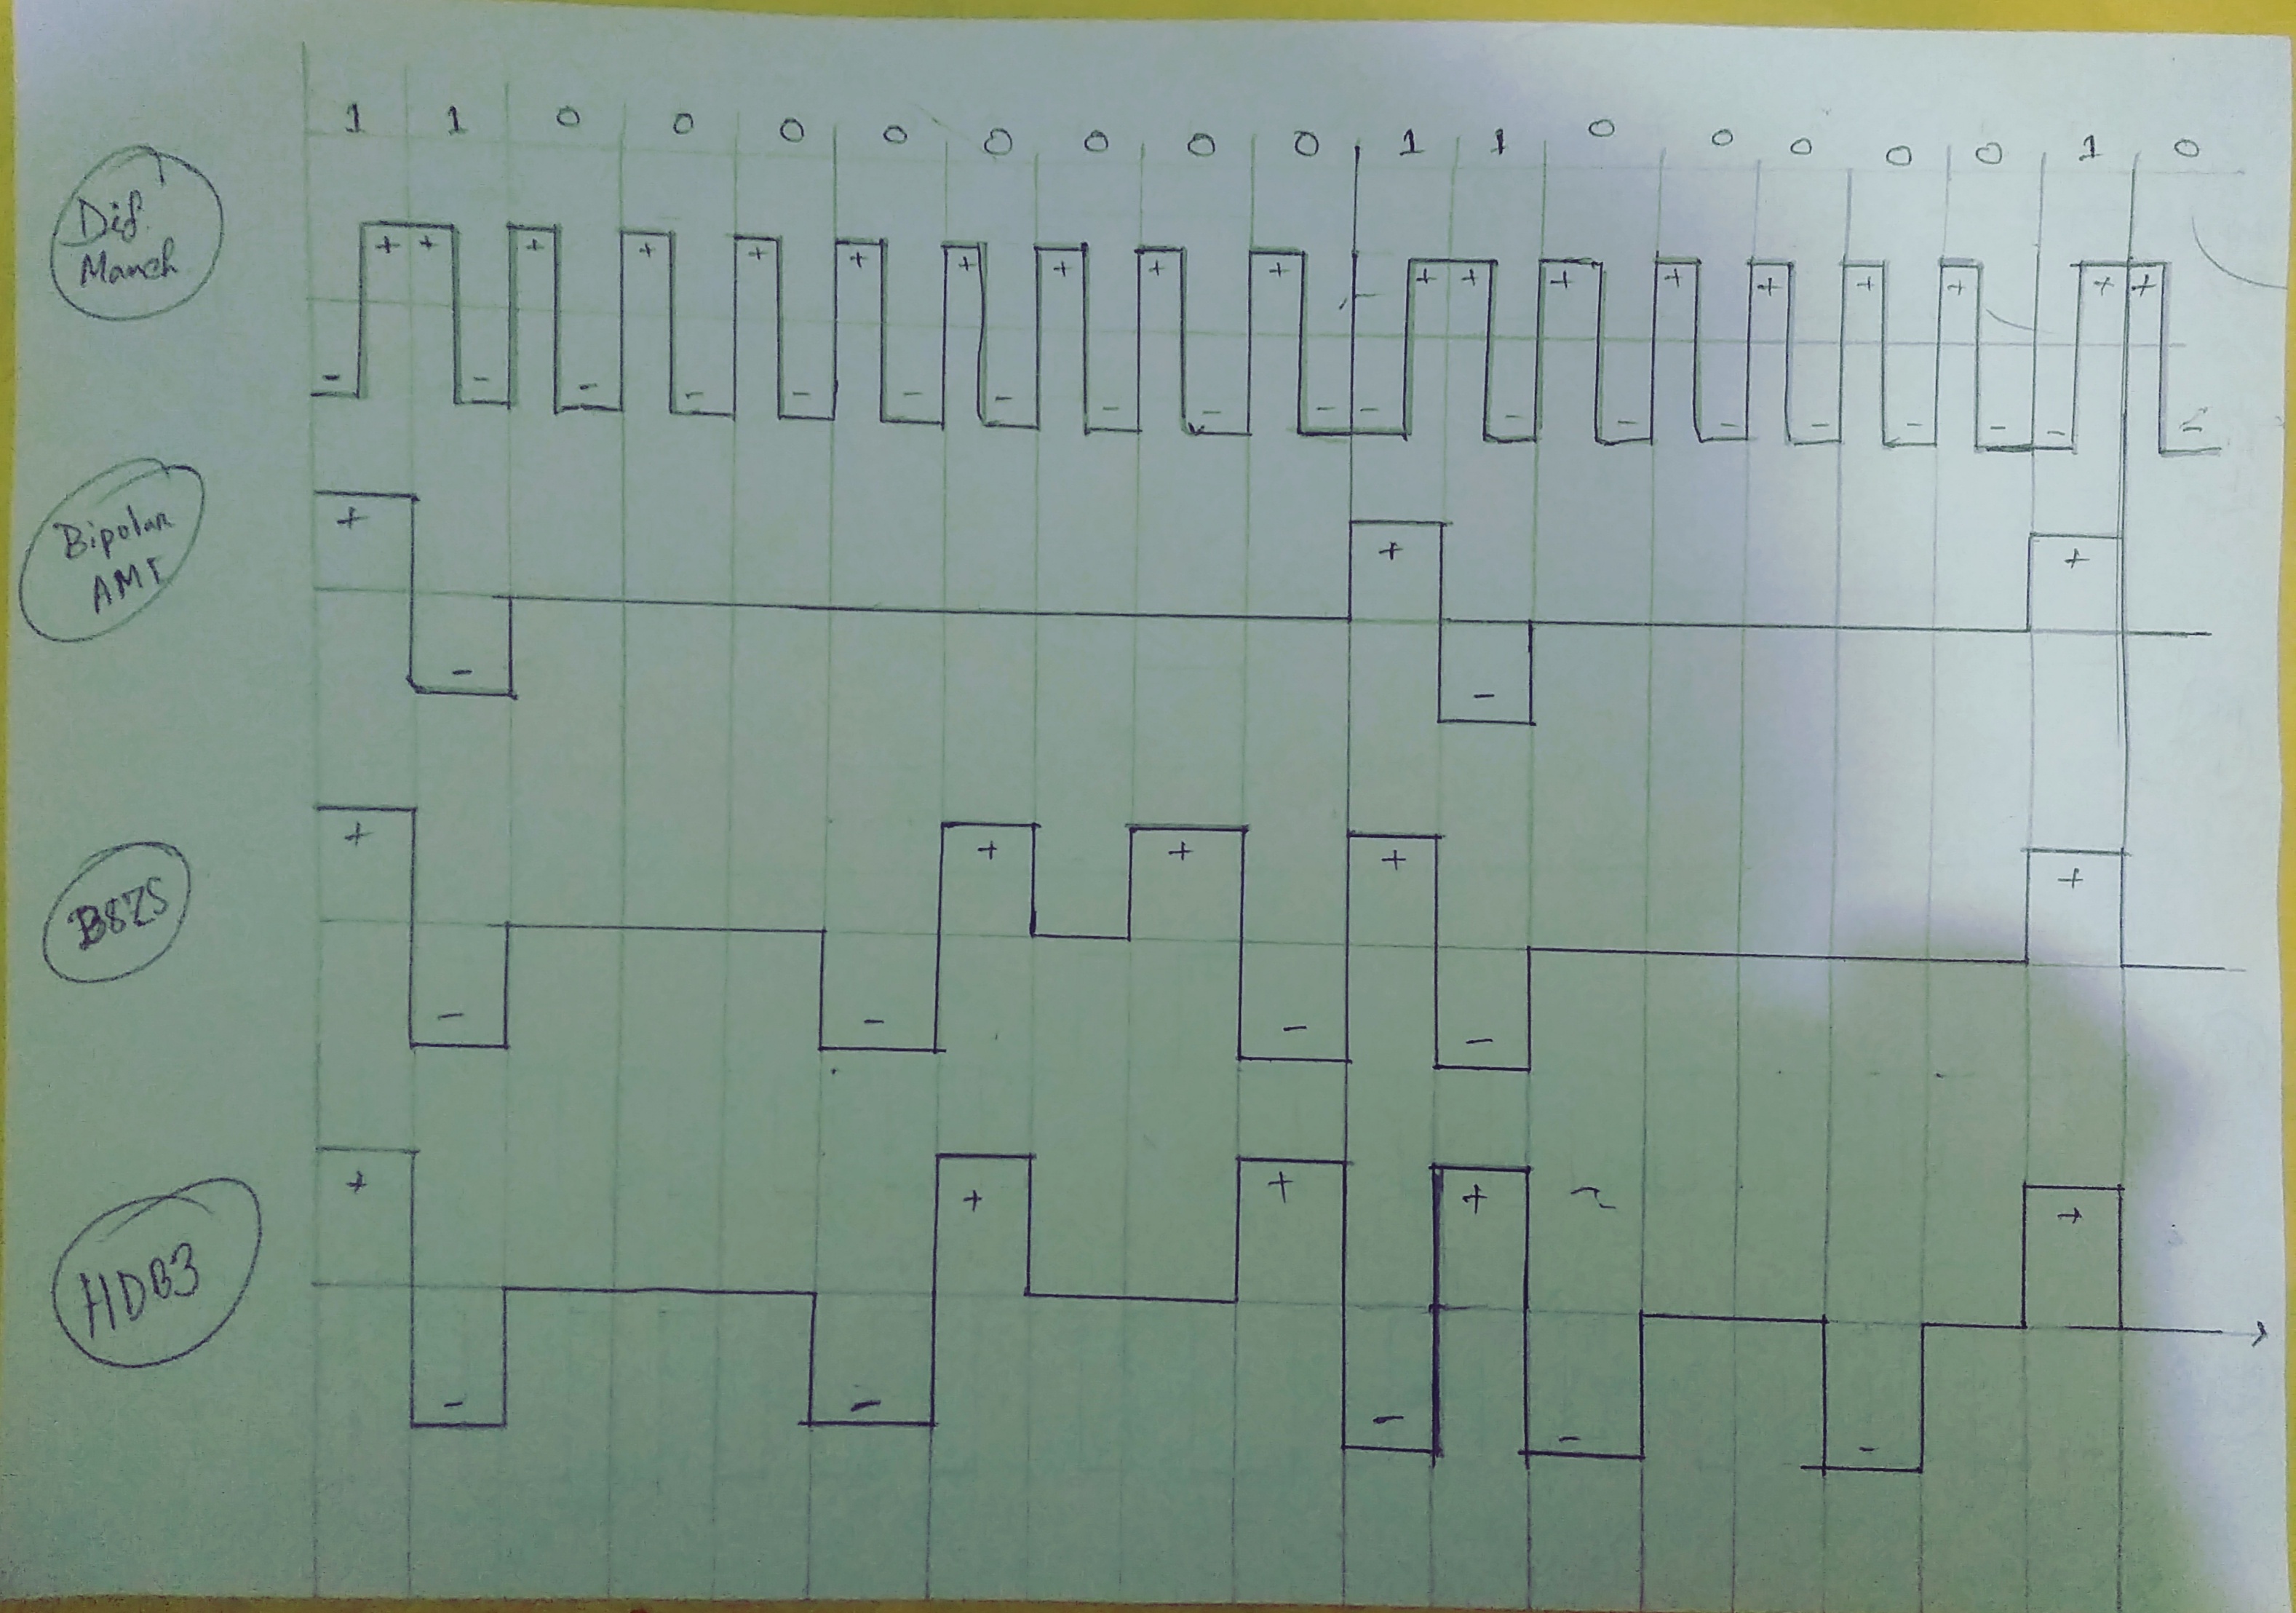 1 1 0 0 0 0 0 0 0 0 1 1 0 0 0 0 0 1 0
Dif.
Manch
+ + + + + + + + + + + + + + + + + + +
- - - - - - - - - - - - - - - - - - -
Bipolar
AMI
+ + +
- -
B8ZS
+ + + + +
- - - -
HDB3
+ + + + +
- - - - -